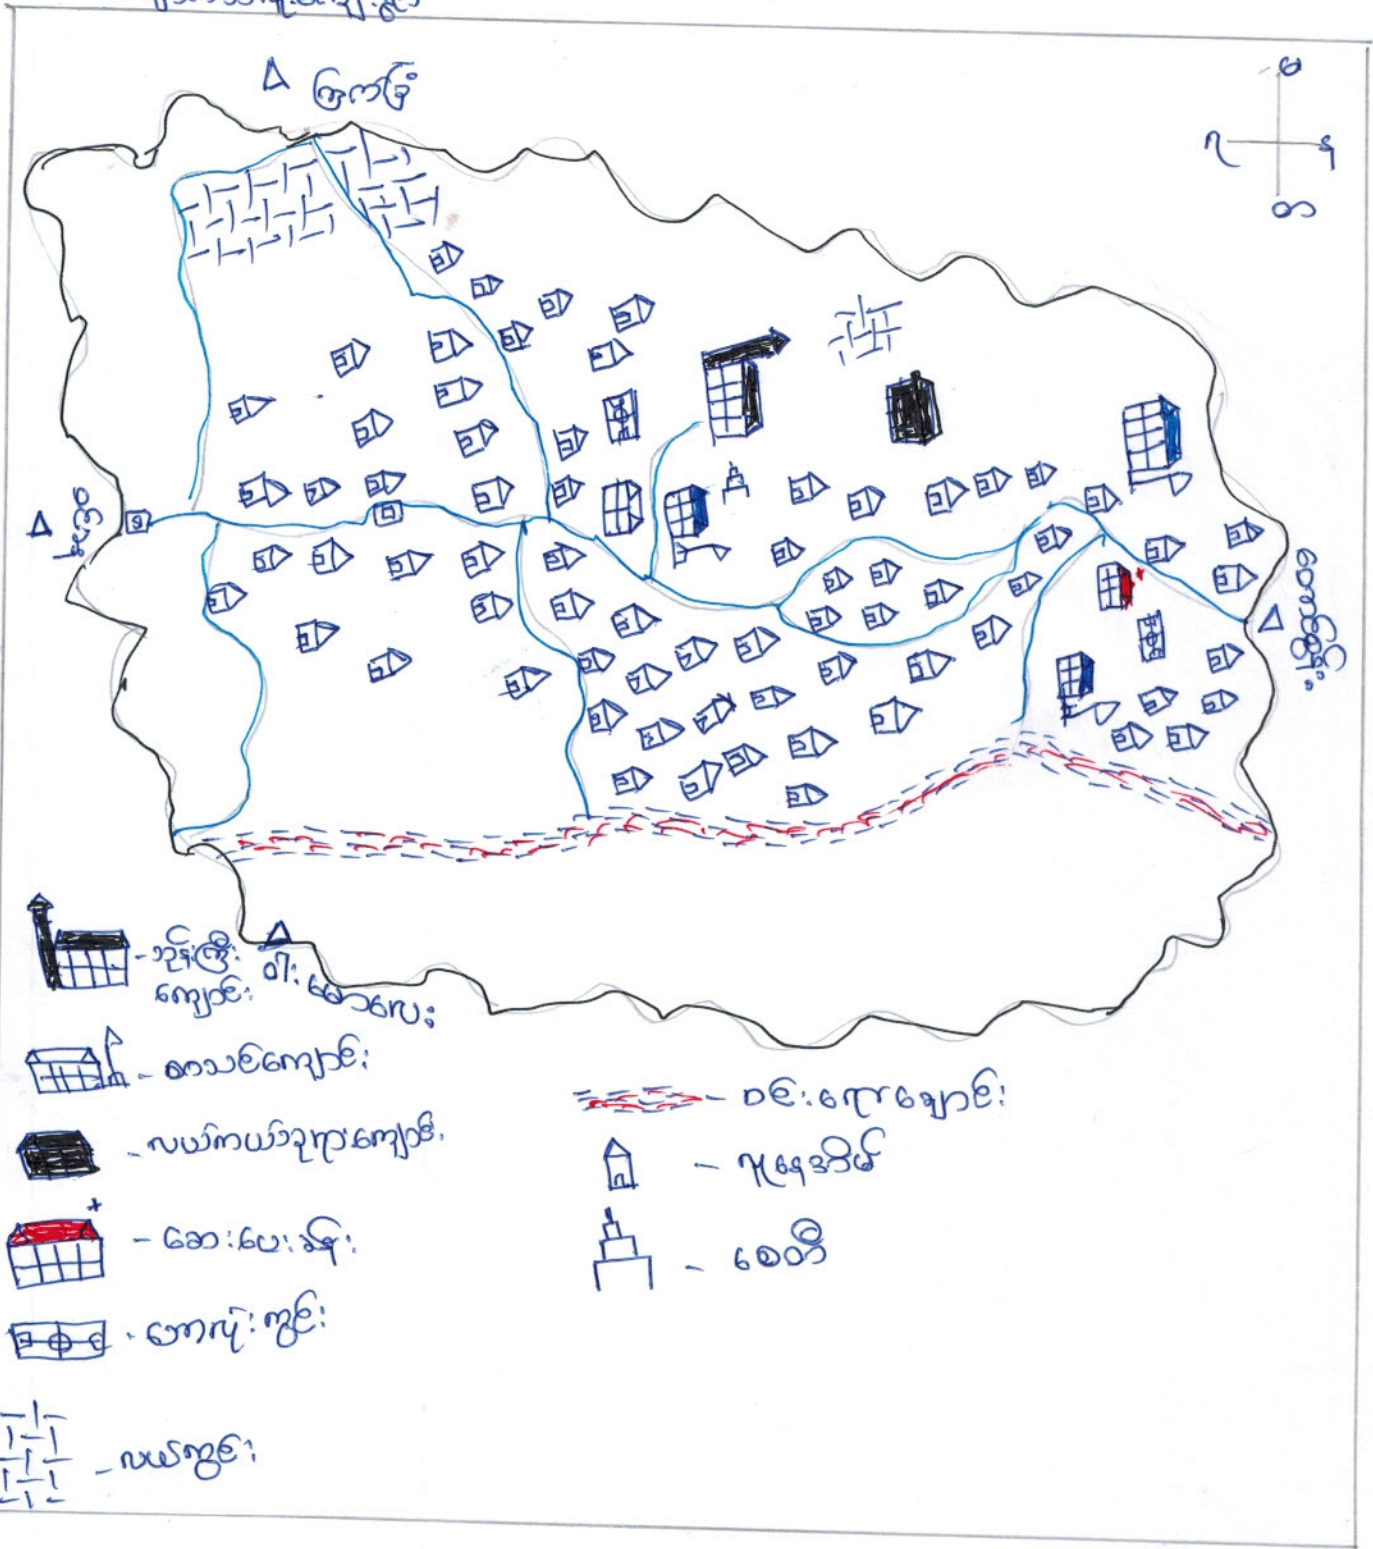 ကြက်ခြံ
မ
ရ
န
တ
ဘုန်းကြီး
ကျောင်း
ဝါးမောလေး
စာသင်ကျောင်း
လယ်ကယ်ဘုရားကျောင်း
ဆေးပေးခန်း
ဘောလုံးကွင်း
လယ်ကွင်း
ဝင်းရောချောင်း
လူနေအိမ်
စေတီ